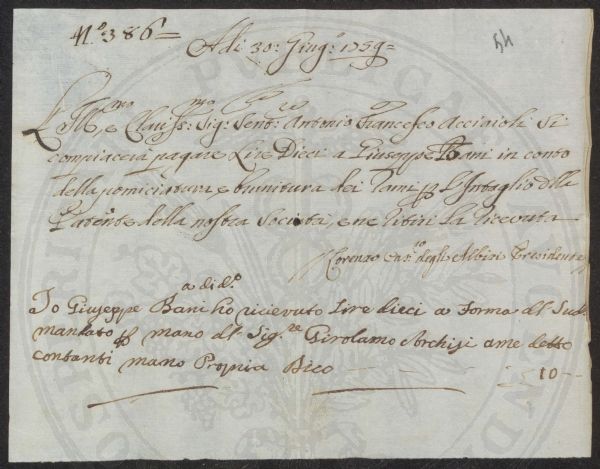 N.º 386=
A di 30: Giug.º 1759=
44
L'Ill.mo, e Clariss.mo Sig.re Sen.re Antonio Francesco Acciaioli Si
compiacerà pagare Lire Dieci a Giuseppe Bani in conto
della pomiciatura e brunitura dei Rami p L'Intaglio della
Patente della nostra Società, e ne ritiri la ricevuta
Lorenzo degli Albizi Presidente
a di d.º
Io Giuseppe Bani ho ricievuto Lire dieci a Forma del Sud.
mandato p mano del Sig.re Girolamo a me detto
contanti mano Propria Dico
10